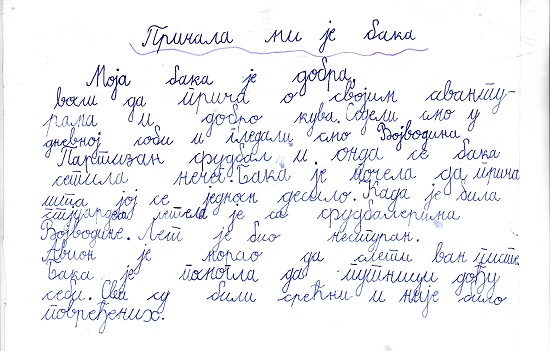 Причала ми је бака
Моја бака је добра,
воли да прича о својим аванту-
рама и добро кува. Седели смо у
дневној соби и гледали смо Војводина
Партизан фудбал и онда се бака
сетила нечег. Бака је почела да прича
шта јој се једном десило. Када је била
стјуардеса летела је са фудбалерима
Војводине. Лет је био несигуран.
Авион је морао да слети ван писте
Бака је помогла да путници дођу
себи. Сви су били срећни и није било
повређених.